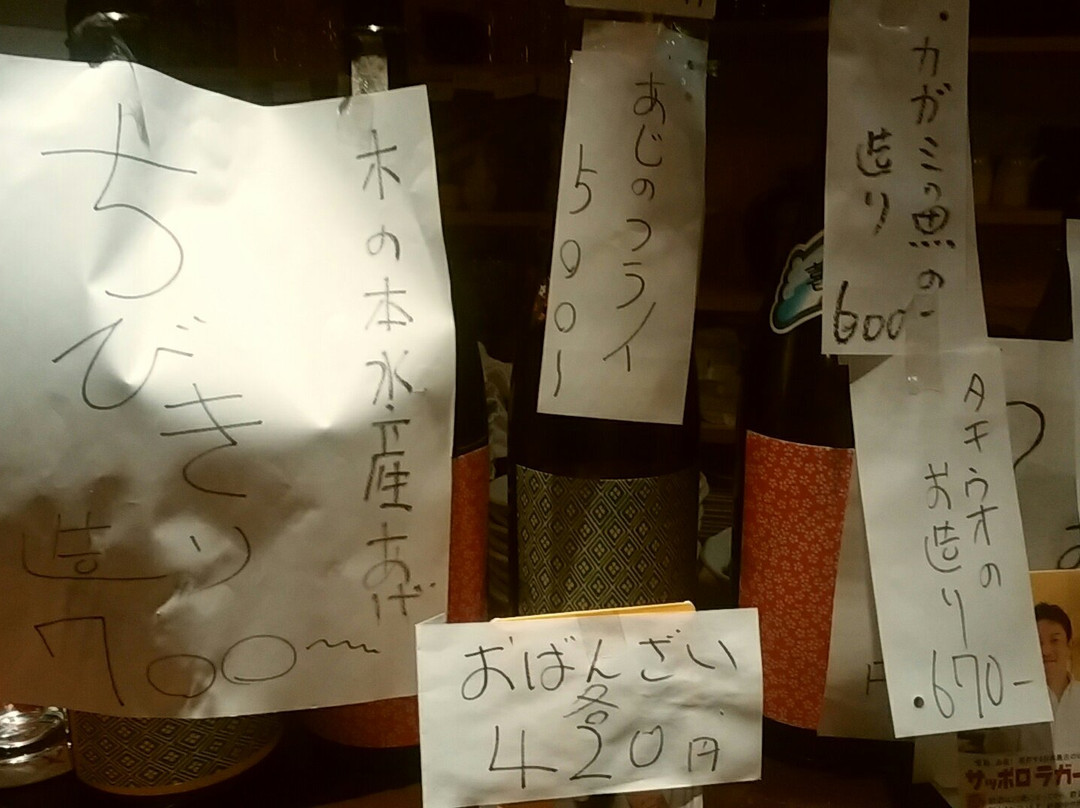 木の本水産あげ
ちびき
造り
700~
あじのフライ
500-
・カガミの魚の
造り
600-
タキウオの
お造り
・670-
おばんざい
各
420円
サッポロ ラガー